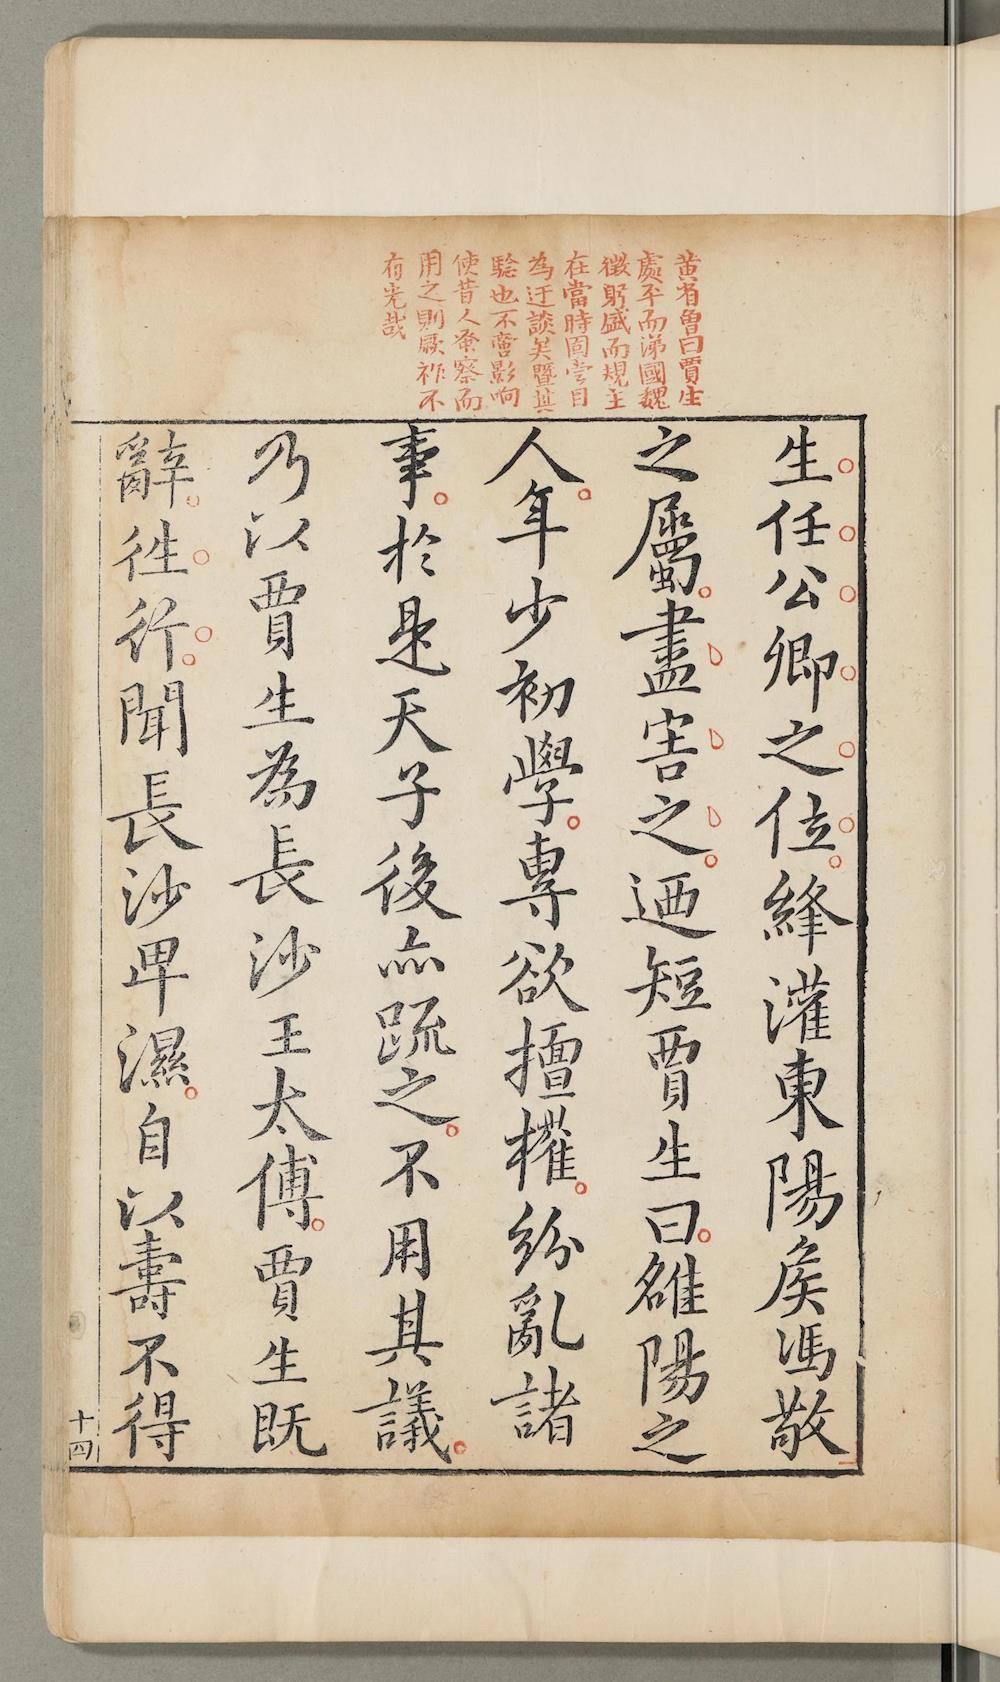 黄省曾曰賈生
處平而涕國巍
徵躬盛而規主
在當時固嘗目
為迂談矣曁其
驗也不啻影响
使昔人黍察而
用之則厥祚不
有光哉
生任公卿之位絳灌東陽矦馮敬
之屬盡害之迺短賈生曰雒陽之
人年少初學專欲擅權紛亂諸
事於是天子後亦疏之不用其議
乃以賈生為長沙王太傅賈生既
辭徃行聞長沙卑濕自以壽不得
十四